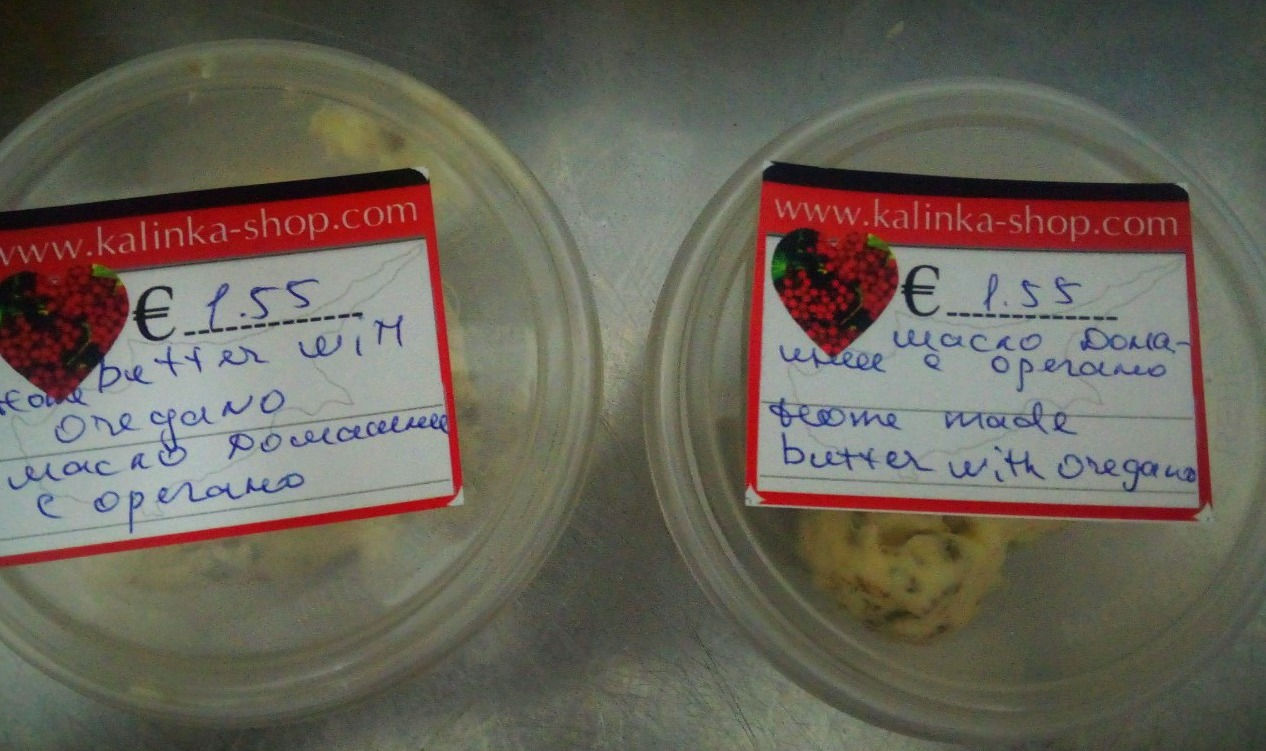 www.kalinka-shop.com
€ 1.55
Home butter with
oregano
масло домашнее
с орегано
www.kalinka-shop.com
€ 1.55
масло дома-
шнее с орегано
Home made
butter with oregano